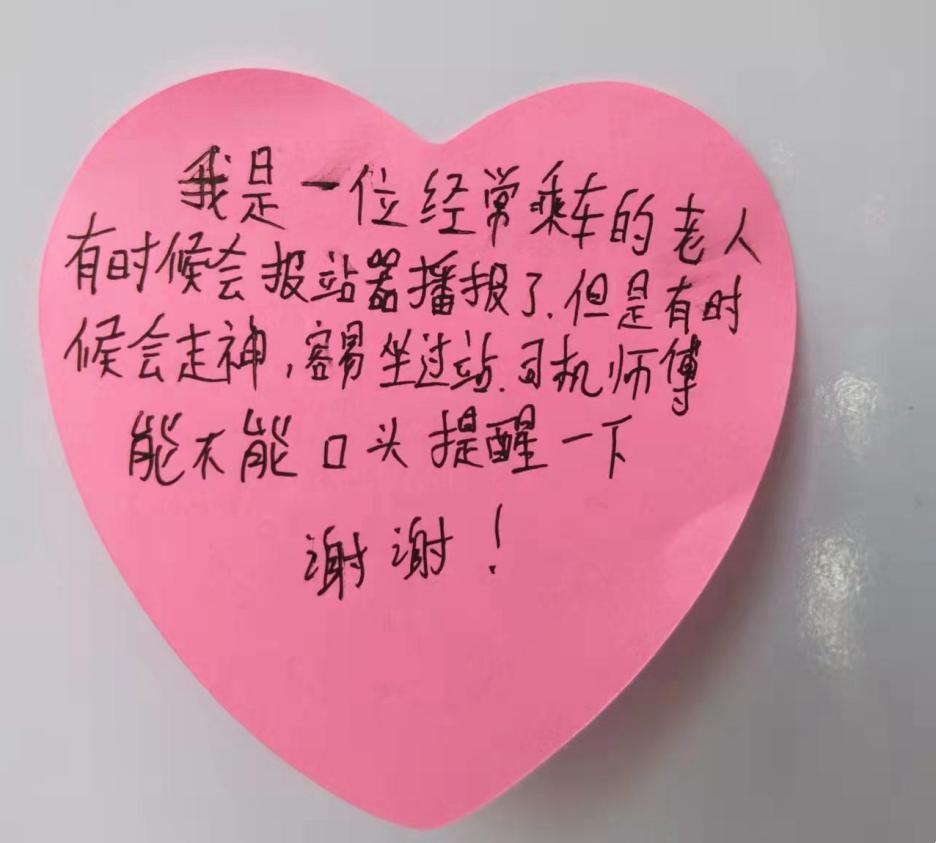 我是一位经常乘车的老人
有时候会报站器播报了.但是有时
候会走神,容易坐过站.司机师傅
能不能口头提醒一下
谢谢!